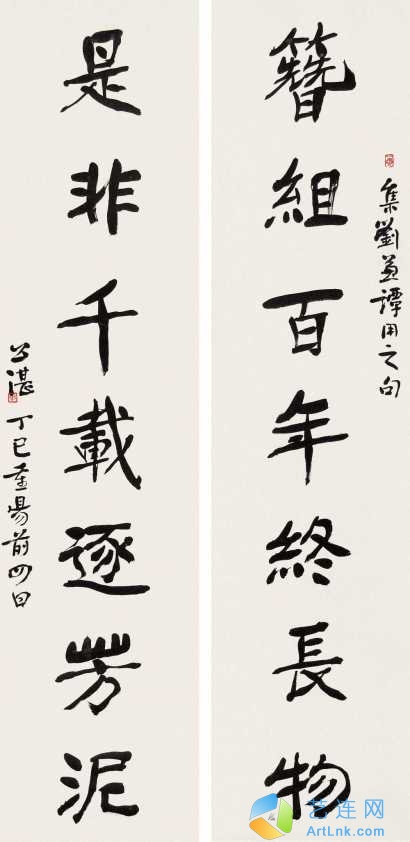 簪組百年終長物
集劉兼譚用之句
是非千載逐芳泥
公湛 丁巳重陽前四日
艺连网
ArtLnk.com